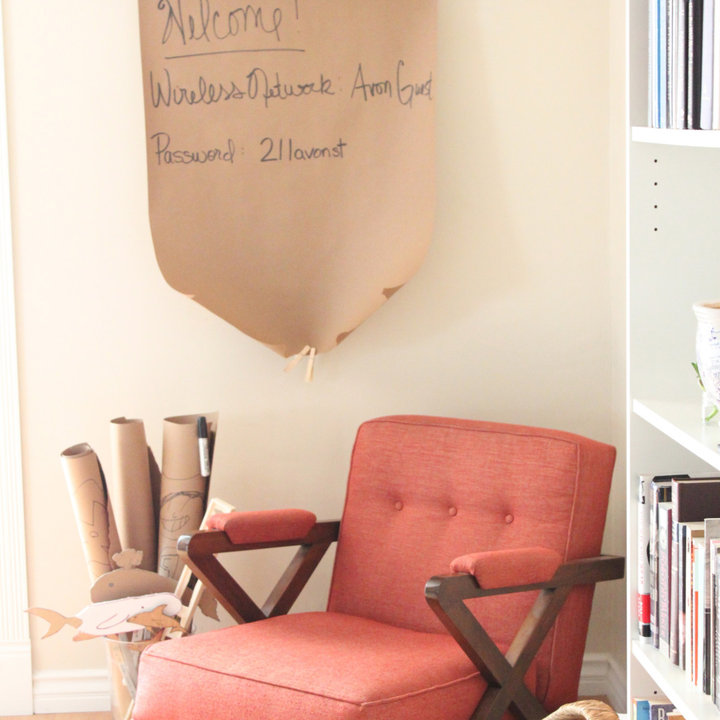 Welcome!
Wireless Network: Avon Guest
Password: 211avonst